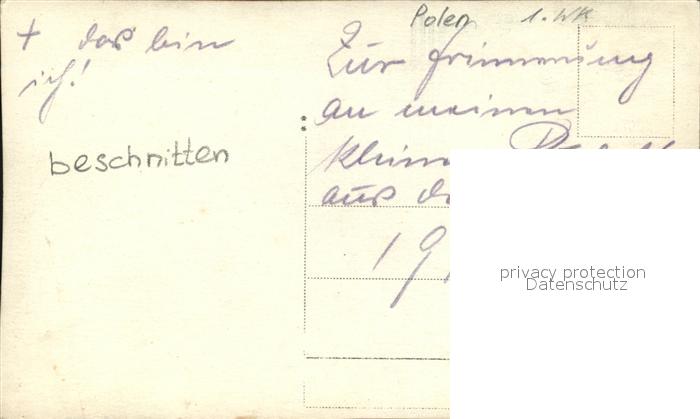 Polen 1. WK
+ das bin
ich!
beschnitten
Zur Erinnerung
an meinen
kleinen
aus
191
privacy protection
Datenschutz